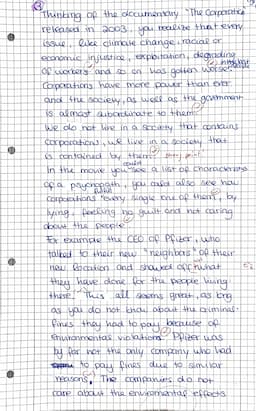 Thinking of the documentary "The Corporation"
released in 2003, you realize that every
issue, like climate change, racial or
economic injustice, exploitation, degrading
of workers and so on has gotten worse.
Corporations have more power than ever
and the society, as well as the government
is almost subordinate to them.
We do not live in a society that contains
corporations, we live in a society that
is contained by them.
In the movie you see a list of characteristics
of a psychopath, you could also see how
corporations every single one of them, by
lying, feeling no guilt and not caring
about the people.
For example the CEO of Pfizer, who
talked to their new "neighbors" of their
new location and showed off what
they have done for the people living
there. This all seems great, as long
as you do not know about the criminal-
fines they had to pay because of
environmental violations. Pfizer was
by far not the only company who had
to pay fines due to similar
reasons. The companies do not
care about the enviromental effects